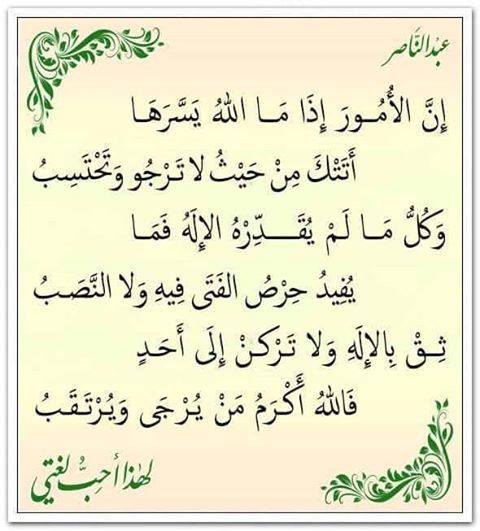 عبْدالنَّاصر
إِنَّ الأُمُورَ إِذَا مَا اللهُ يَسَّرَهَا
أَتَتْكَ مِنْ حَيْثُ لا تَرْجُو وَتَحْتَسِبُ
وَكُلُّ مَا لَمْ يُقَدِّرْهُ الإِلَهُ فَمَا
يُفِيدُ حِرْصُ الفَتَى فِيهِ وَلا النَّصَبُ
ثِقْ بِالإِلَهِ وَلا تَرْكنْ إِلَى أَحَدٍ
فَاللهُ أَكْرَمُ مَنْ يُرْجَى وَيُرْتَقَبُ
لهٰذا أحِبُّ لغتي